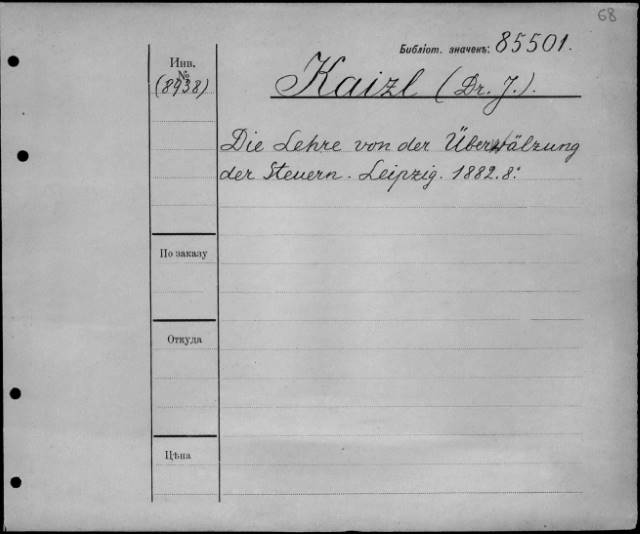 68
Библіот. значекъ: 85501.
Инв.
№
(8938)
Kaizl (Dr. J.).
Die Lehre von der Überwälzung
der Steuern. Leipzig. 1882. 8:
По заказу
Откуда
Цѣна